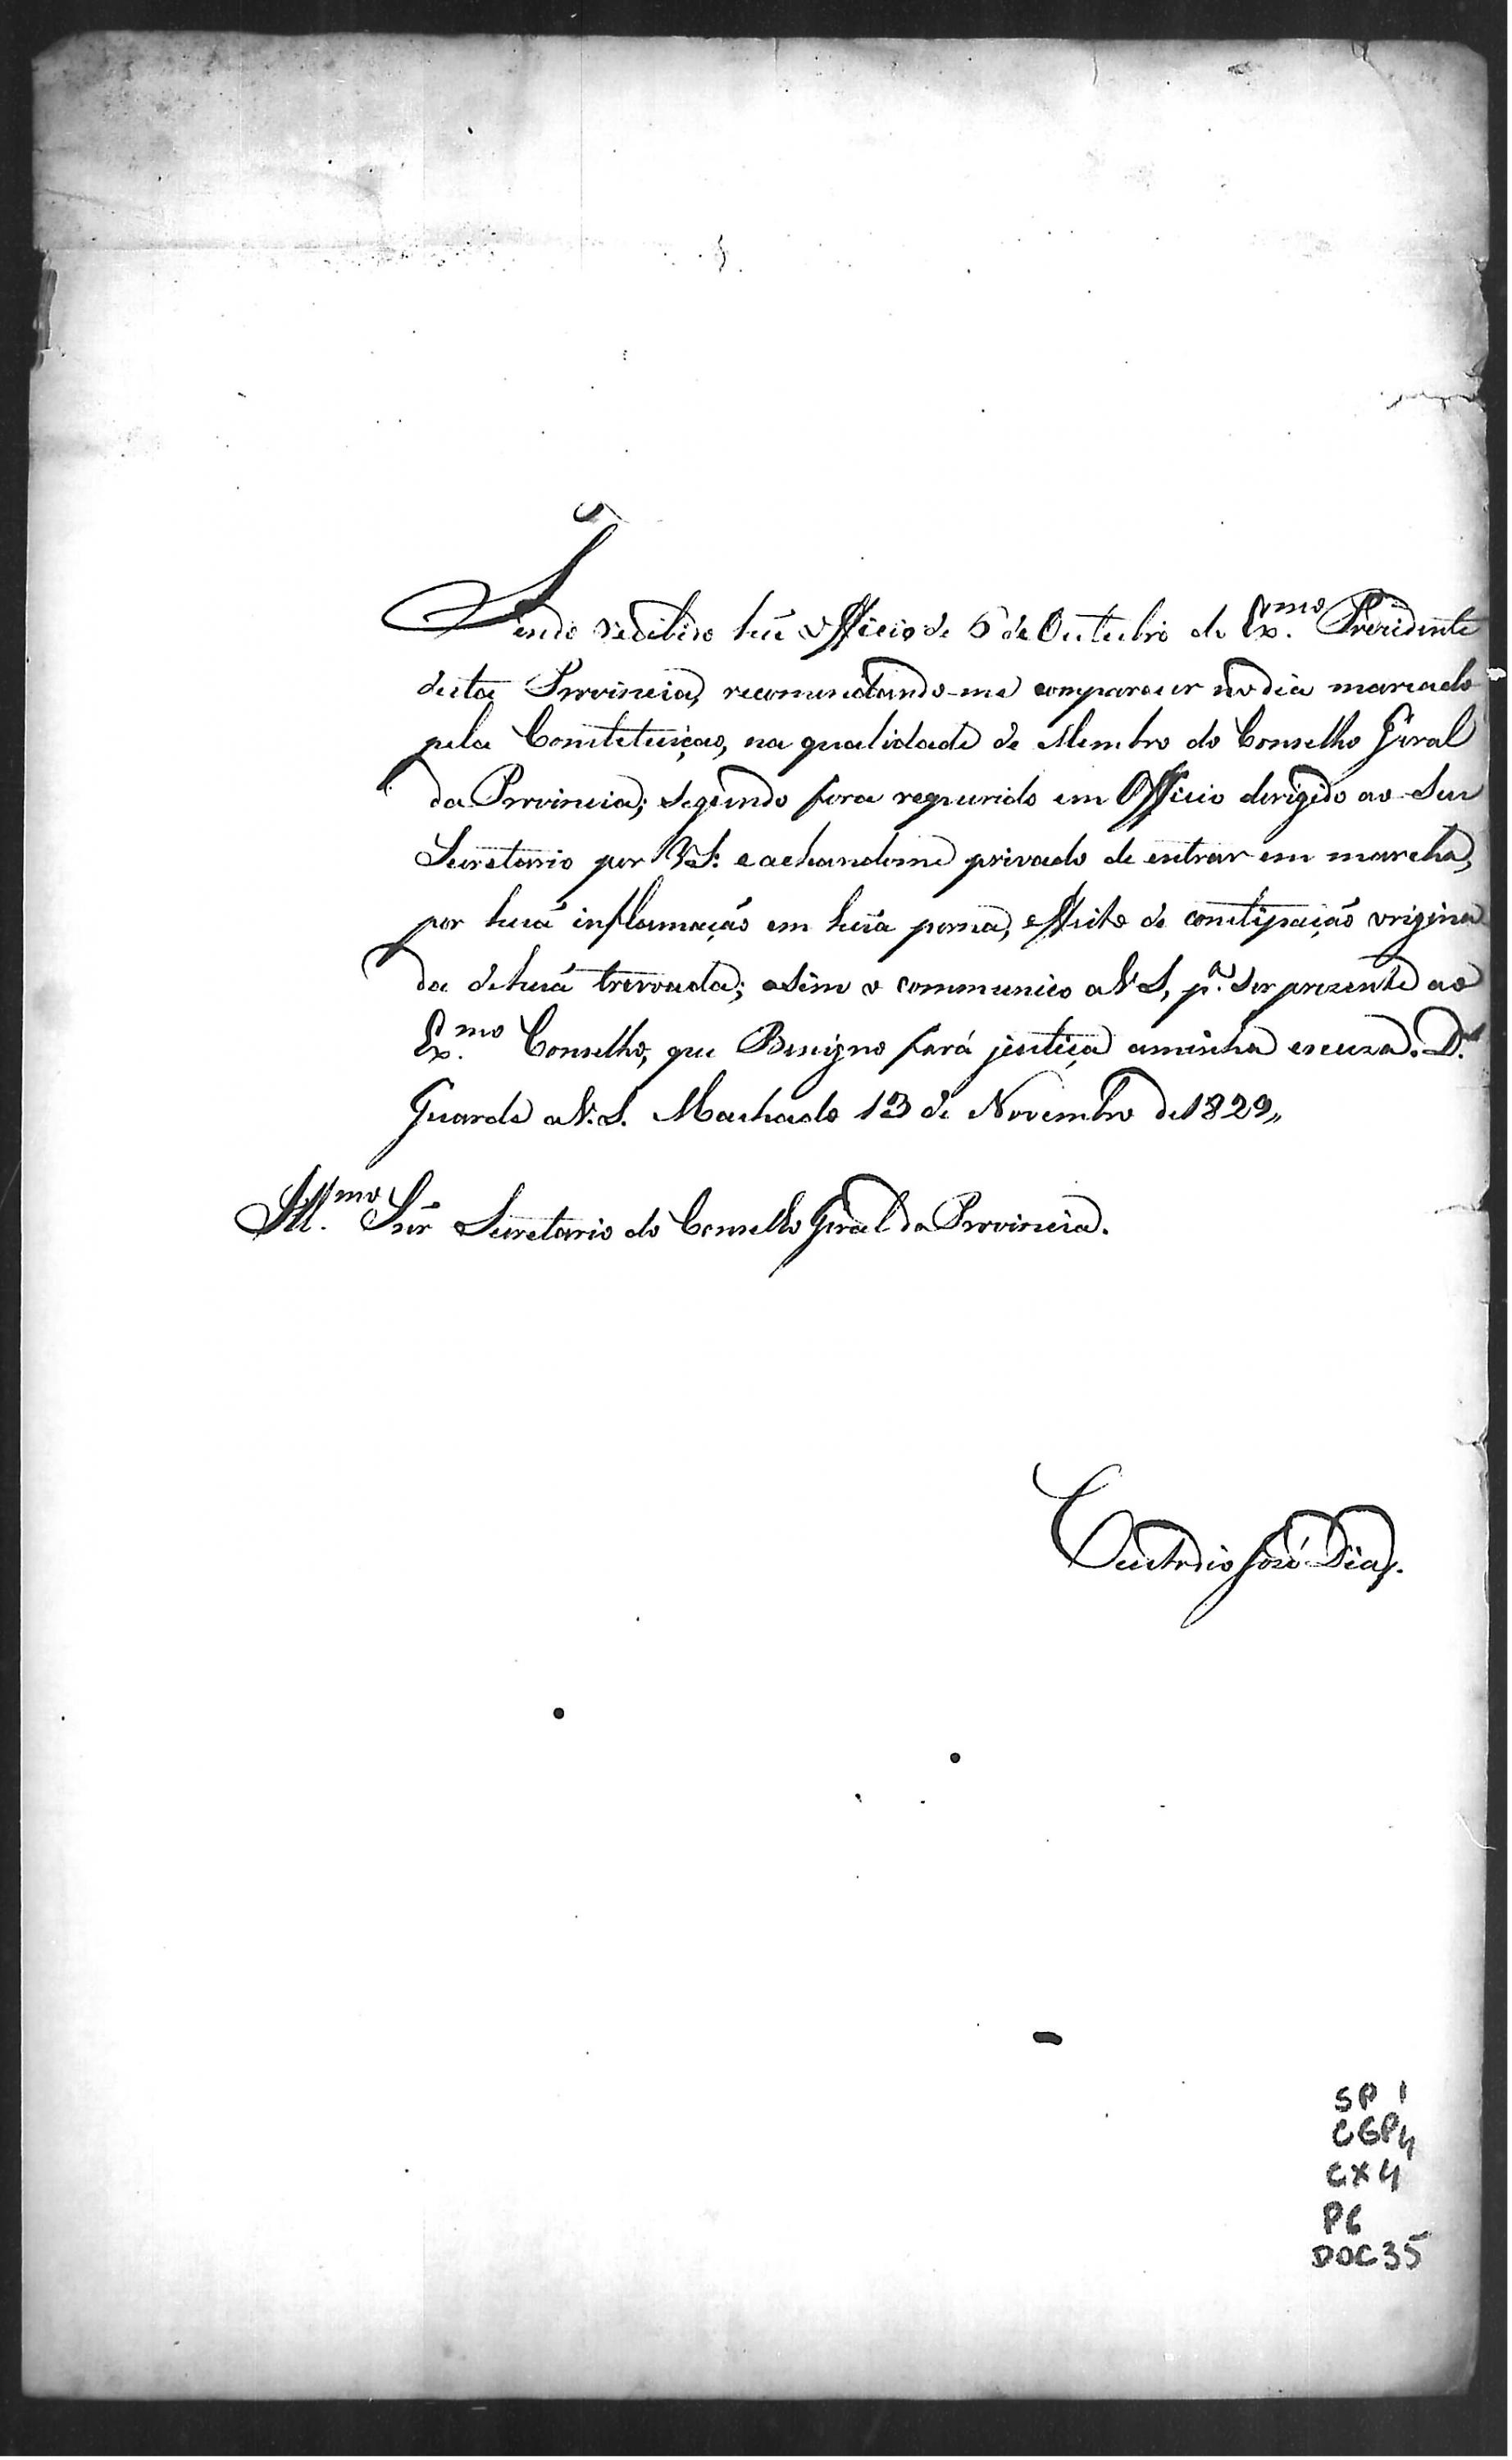 Tendo recebido hũ Officio de 6 de Outubro do Ex.mo Prezidente
desta Provincia, recomendando-me comparecer no dia marcado
pela Constetuição, na qualidade de Membro do Conselho Geral
da Provincia; segundo fora requerido em Officio derigido ao Seu
Secretario por V.S.: e achandome privado de entrar em marcha,
por huã inflamação em huã perna, effeito de constipação origina
da de huã trovoada; asim o communico a V.S., p.ª ser prezente ao
Ex.mo Conselho, que Benigno fará justiça aminha escuza. D.s
Guarde a V.S. Machado 13 de Novembro de 1829,,
Ill.mo Snr Secretario do Conselho Geral da Provincia.
Custodio José Dias.
SP 1
CGP4
CX4
P6
DOC35